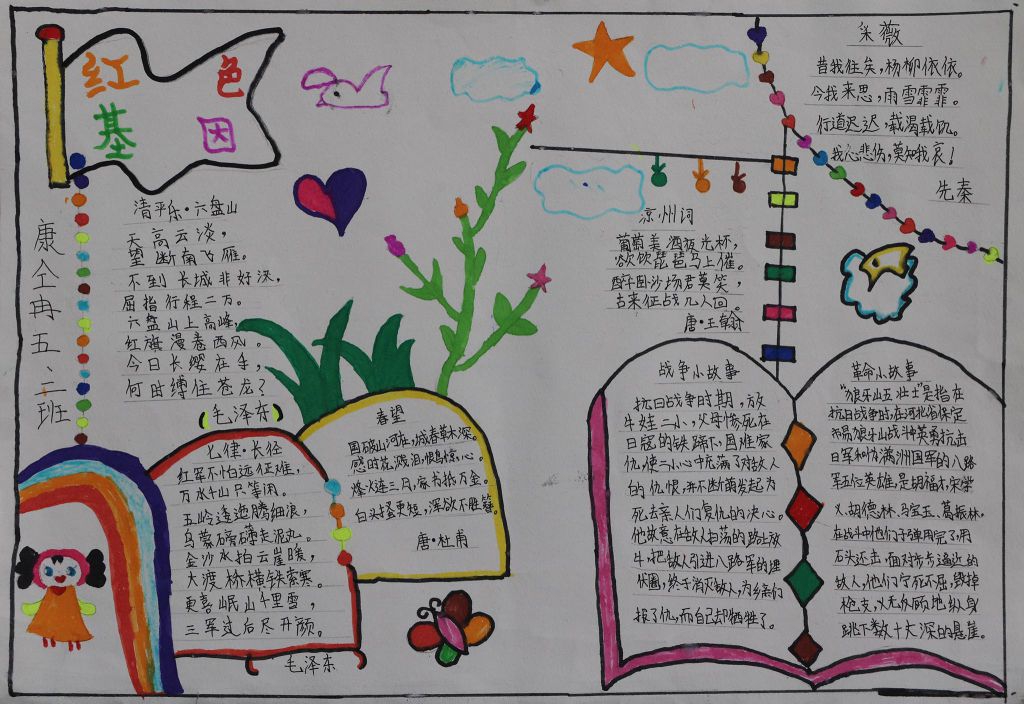 红色
基因
康仝冉五、二班
清平乐·六盘山
天高云淡，
望断南飞雁。
不到长城非好汉，
屈指行程二万。
六盘山上高峰，
红旗漫卷西风。
今日长缨在手，
何时缚住苍龙？
毛泽东
七律·长征
红军不怕远征难，
万水千山只等闲。
五岭逶迤腾细浪，
乌蒙磅礴走泥丸。
金沙水拍云崖暖，
大渡桥横铁索寒。
更喜岷山千里雪，
三军过后尽开颜。
毛泽东
春望
国破山河在，城春草木深。
感时花溅泪，恨鸟惊心。
烽火连三月，家书抵万金。
白头搔更短，浑欲不胜簪。
唐·杜甫
采薇
昔我住矣，杨柳依依。
今我来思，雨雪霏霏。
行道迟迟，载渴载饥。
我心悲伤，莫知我哀！
先秦
凉州词
葡萄美酒夜光杯，
欲饮琵琶马上催。
醉卧沙场君莫笑，
古来征战几人回。
唐·王翰
战争小故事
抗日战争时期，放
牛娃二小，父母惨死在
日寇的铁蹄下。国难家
仇，使二小心中充满了对敌人
的仇恨，并不断萌发起为
死去亲人们复仇的决心。
他故意在敌人扫荡的路上放
牛，把敌人引进八路军的埋
伏圈，终于消灭敌人，为乡亲们
报了仇，而自己却牺牲了。
革命小故事
“狼牙山五壮士”是指在
抗日战争时，在河北省保定
市易狼牙山战斗中英勇抗击
日军和伪满洲国军的八路
军五位英雄，是胡福才、宋学
义、胡德林、马宝玉、葛振林，
在战斗中他们子弹用完了，用
石头还击，面对步步逼近的
敌人，他们宁死不屈，毁掉
枪支，义无反顾地纵身
跳下数十丈深的悬崖。